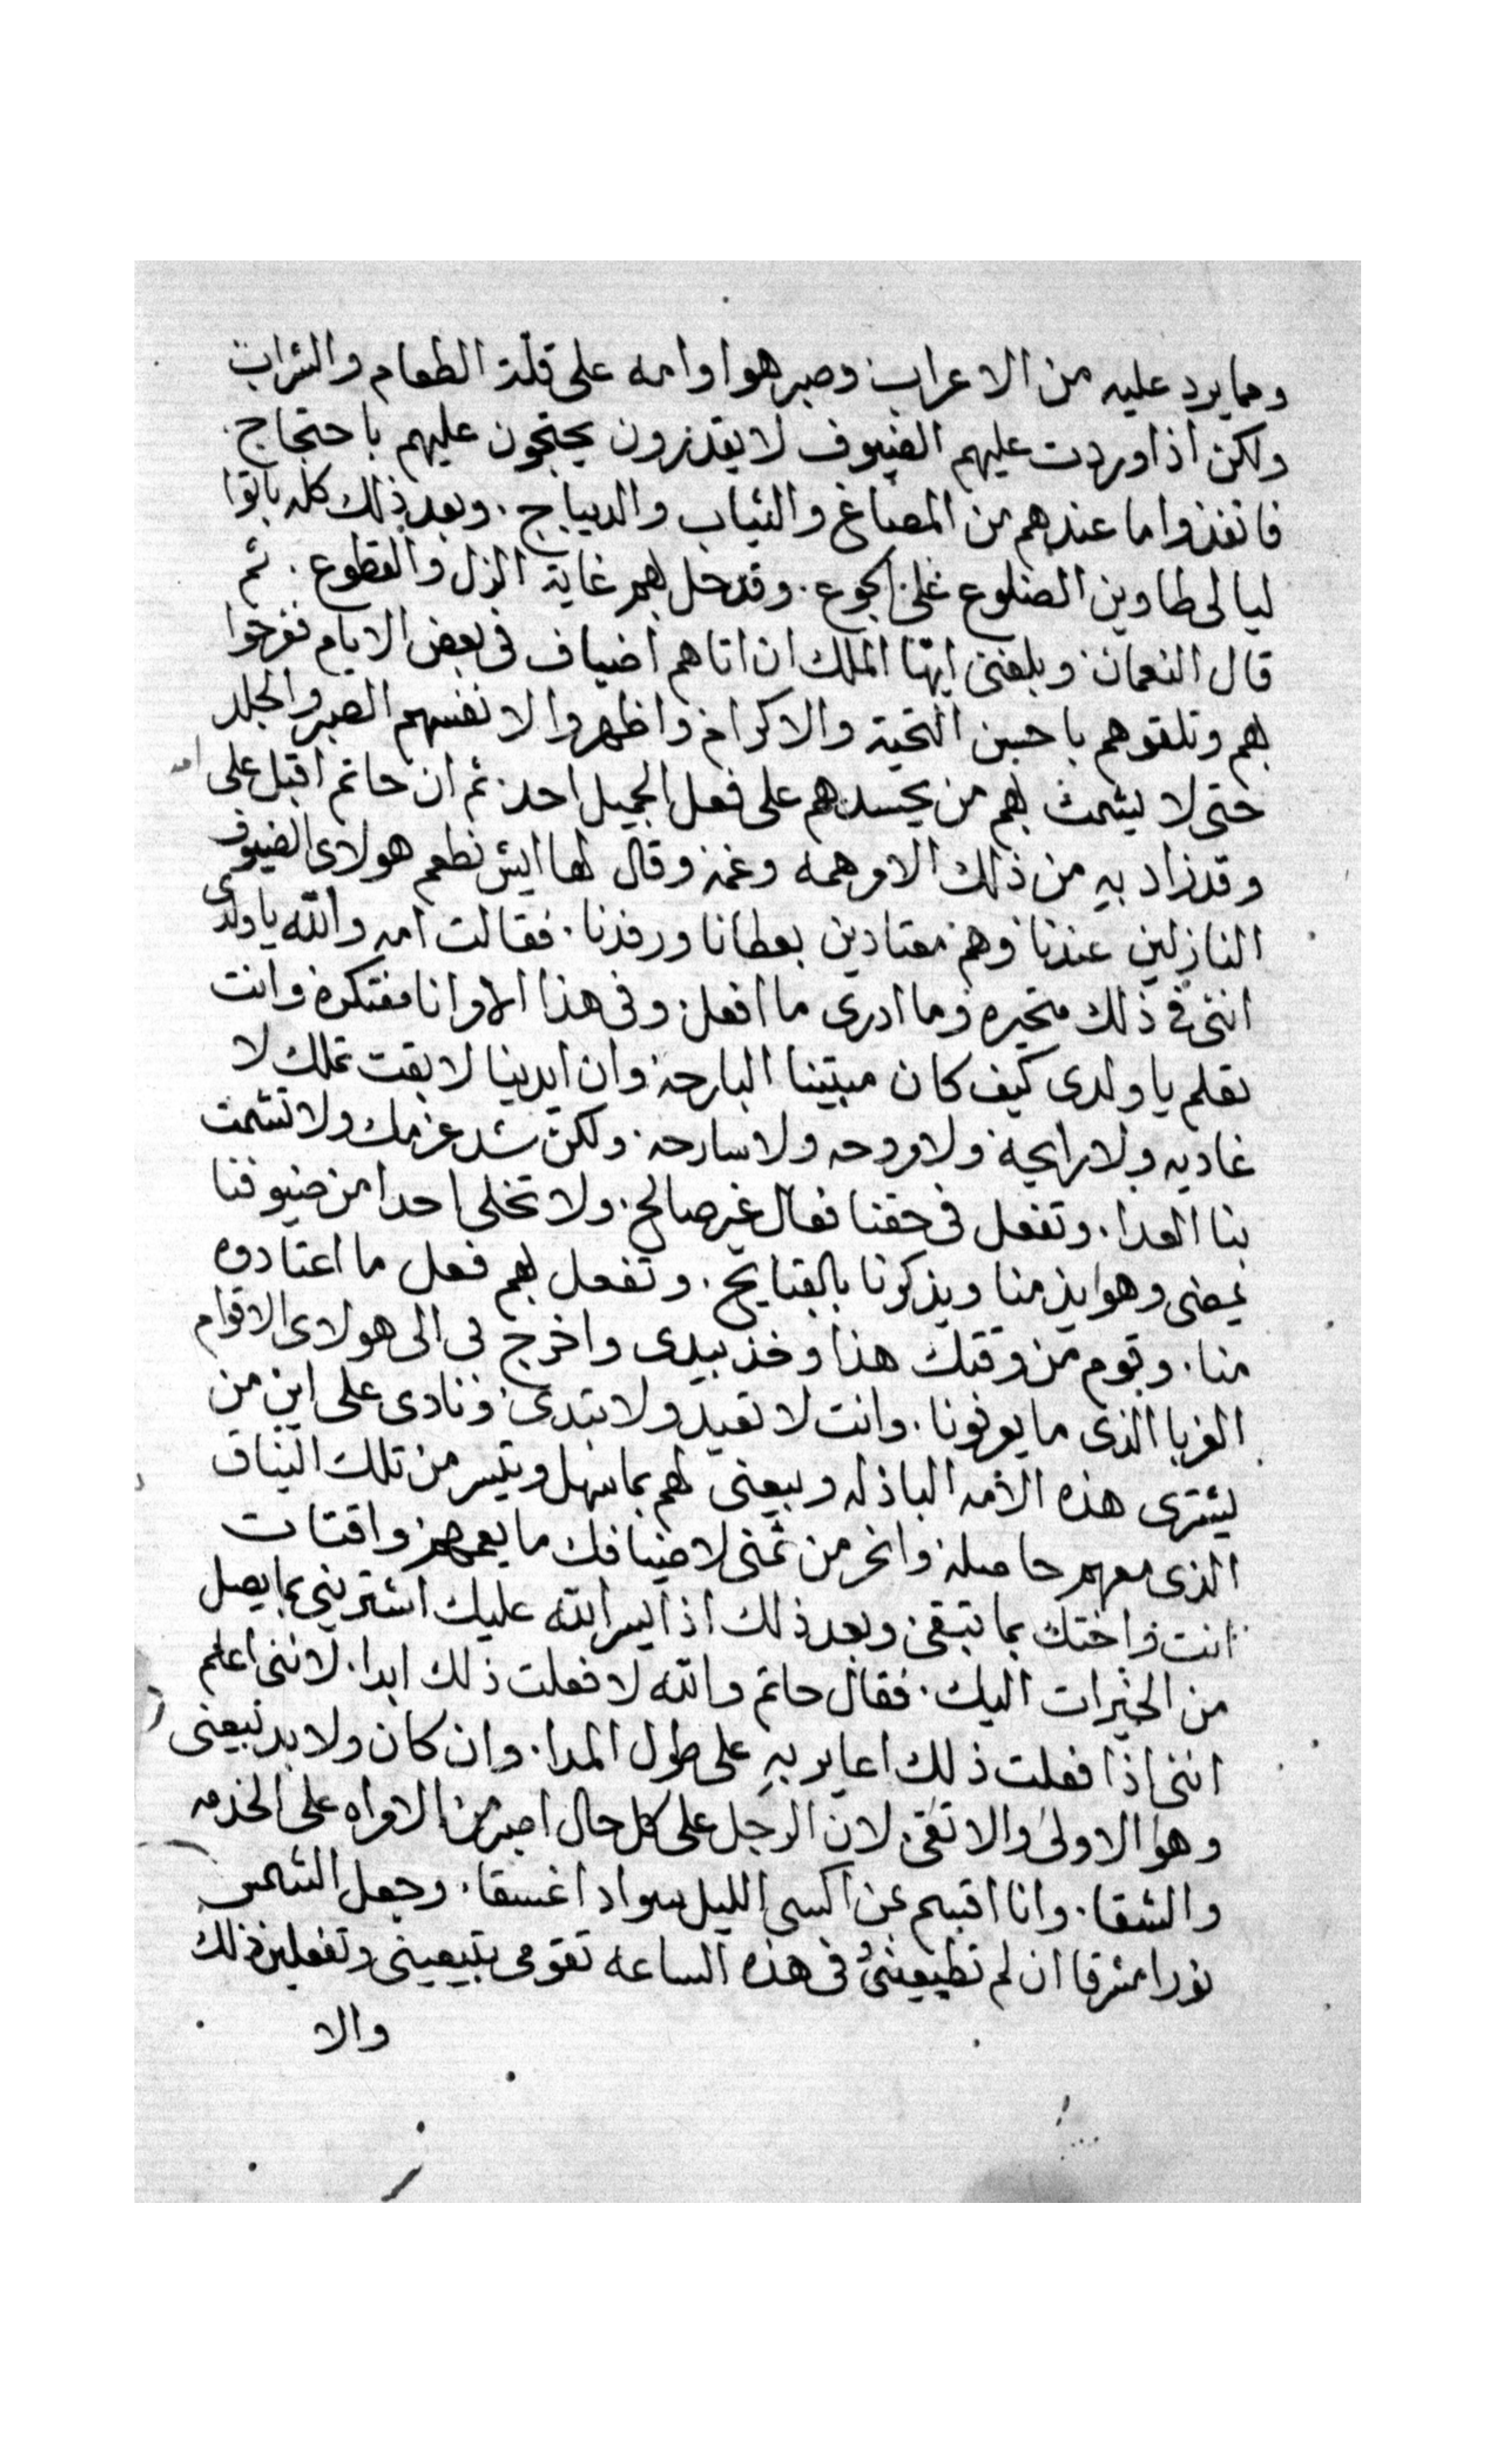 ومما يرد عليه من الاعراب وصبر هوا وامه على قلة الطعام والشراب
ولكن اذا وردت عليهم الضيوف لا يقدرون يحتجون عليهم باحتجاج
فانفذوا ما عندهم من المصاغ والثياب والديباج . وبعد ذلك كله باتوا
ليالى طاوين الضلوع على الجوع . وقد حل بهم غاية الزل والقطوع . ثم
قال النعمان وبلغنى ايها الملك ان اتاهم اضياف فى بعض الايام ففرحوا
بهم وتلقوهم باحسن التحية والاكرام واظهروا لانفسهم الصبر والجلد
حتى لا يشمت بهم من يحسدهم على فعل الجميل احد ثم ان حاتم اقبل على امه
وقد زاد به من ذلك الامر همه وغمه وقال لها ايش نطعم هولاى الضيوف
النازلين عندنا وهم معتادين بعطانا ورفدنا . فقالت امه والله يا ولدى
اننى فى ذلك متحيره وما ادرى ما افعل وفى هذا الامر انا مفتكره وانت
تعلم يا ولدى كيف كان مبيتنا البارحة وان ايدينا لا بقت تملك لا
غاديه ولا رايحة ولا مروحه ولا سارحه ولكن شد عزمك ولا تشمت
بنا العدا . وتفعل فى حقنا فعال غير صالح . ولا تخلى احدا من ضيوفنا
يمضى وهوا يذمنا ويذكرنا بالقبايح . وتفعل بهم فعل ما اعتادوه
منا . وتوم من وقتك هذا وخذ بيدى واخرج بى الى هولاى الاقوام
الغربا الذى ما يعرفونا . وانت لا تعيد ولا تبتدى ونادى على اين من
يشترى هذه الامه الباذله وبيعنى لهم بما سهل وتيسر من تلك النياق
الذى معهم حاصلة وانحر من ثمنى لاضيافك ما يعمهم واقتات
انت واختك بما تبقى وبعد ذلك اذا يسر الله عليك اشترينى بما يصل
من الخيرات اليك . فقال حاتم والله لا فعلت ذلك ابدا . لاننى اعلم
اننى اذا فعلت ذلك اعاير به على طول المدا . وان كان ولا بد تبيعنى
وهو الاولى والاتقى لان الرجل على كل حال اصبر من الامراه على الخدمه
والشقا . وانا اقسم بمن اكسى الليل سوادا غسقا . وجعل الشمس
نورا مشرقا ان لم تطيعينى فى هذه الساعه تقومى بتبيعينى وتفعلين ذلك
والا